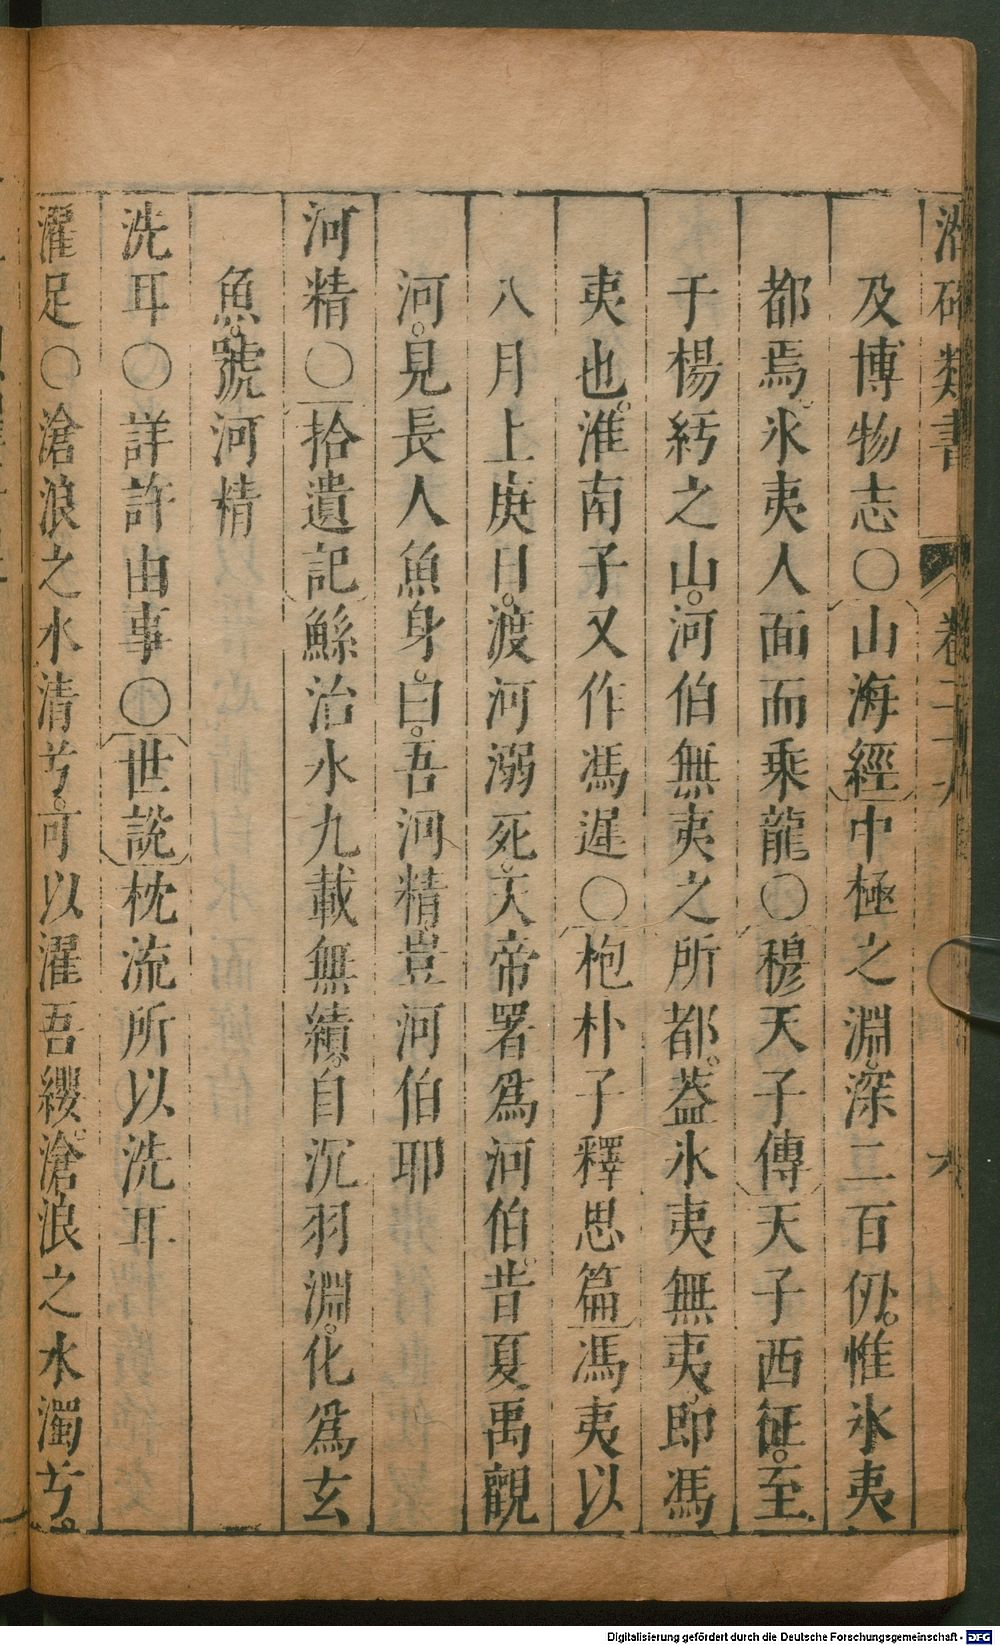 類書 卷二十 六
及博物志○山海經中極之淵深二百仞惟氷夷
都焉氷夷人面而乘龍○穆天子傳天子西征至
于楊紆之山河伯無夷之所都葢氷夷無夷即馮
夷也淮南子又作馮遲○枹朴子釋思篇馮夷以
八月上庚日渡河溺死天帝署爲河伯昔夏禹觀
河見長人魚身曰吾河精豈河伯耶
河精○拾遺記鯀治水九載無績自沉羽淵化爲玄
魚號河精
洗耳○詳許由事○世說枕流所以洗耳
濯足○滄浪之水清兮可以濯吾纓滄浪之水濁兮
Digitalisierung gefördert durch die Deutsche Forschungsgemeinschaft - DFG